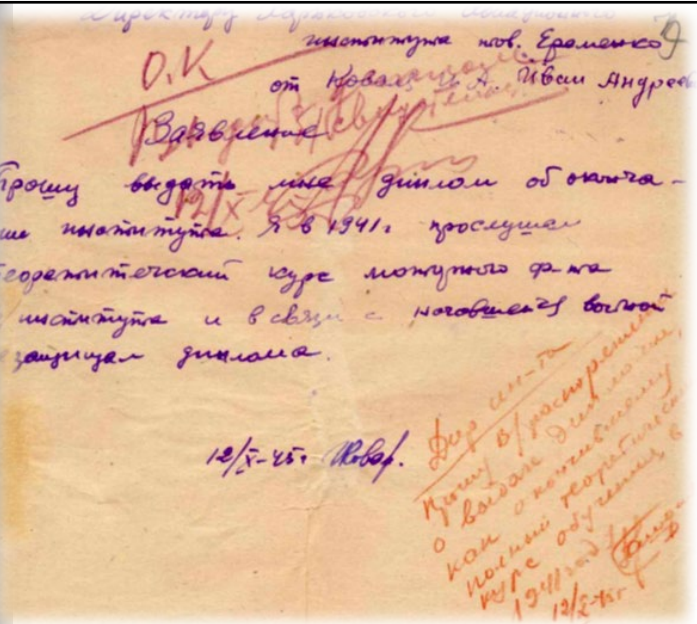 Директору Харьковского авиационного
института тов. Еременко
от Коваль И.А. Иван Андрее
О.К
Заявление
Прошу выдать мне диплом об оконча-
ии института. Я в 1941г прослушал
теоретический курс
института и в связи с начавшейся войной
е защищал диплома.
12/X-45г Ковал.
12/X
Дир ин-та
Прошу В/распоряжения
о выдаче диплома,
как окончившему
полный теоретический
курс обучения в
1941 году
12/X-45г